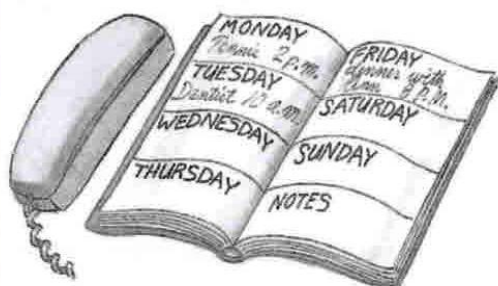 MONDAY
Tennis 2 p.m.
TUESDAY
Dentist 10 a.m.
WEDNESDAY
THURSDAY
FRIDAY
dinner with
Ann 8 P.M.
SATURDAY
SUNDAY
NOTES